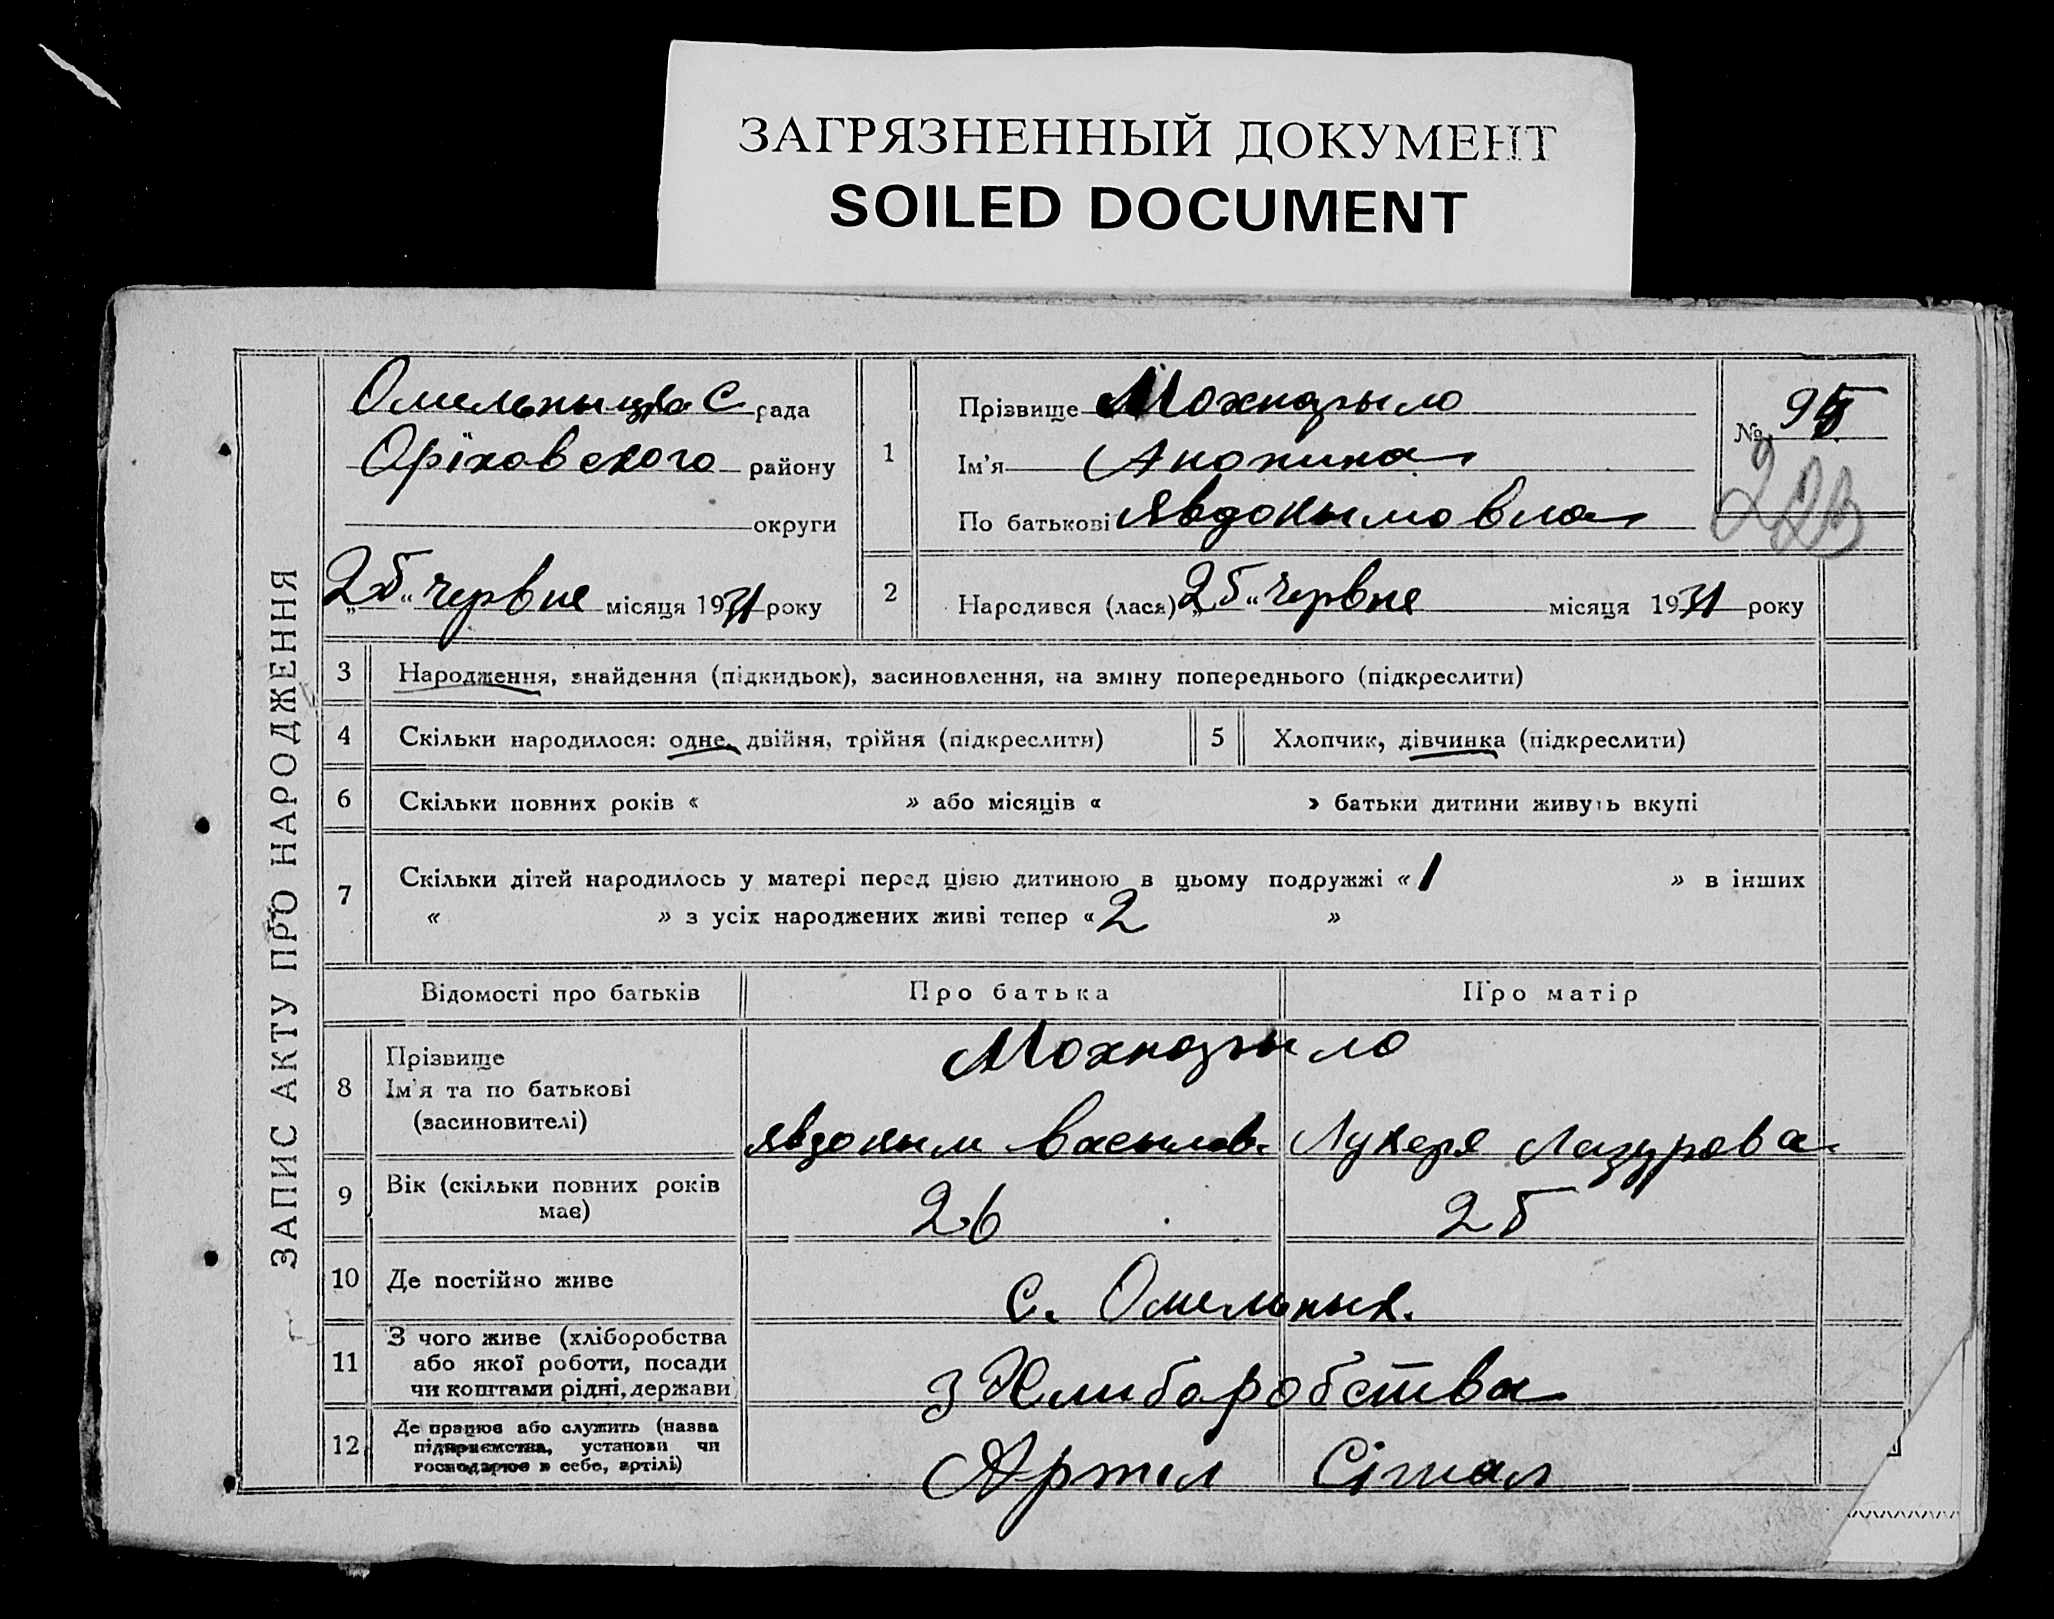 ЗАГРЯЗНЕННЫЙ ДОКУМЕНТ
SOILED DOCUMENT
ЗАПИС АКТУ ПРО НАРОДЖЕННЯ
С рада
Оріховского району
округи
„25“ червня місяця 1931 року
1
Прізвище Мохнарыло
Ім'я
По батькові Явдокымовна
№ 95
223
2
Народився (лася) „25“ червня місяця 1931 року
3 Народження, знайдення (підкидьок), засиновлення, на зміну попереднього (підкреслити)
4 Скільки народилося: одне, двійня, трійня (підкреслити)
5 Хлопчик, дівчинка (підкреслити)
6 Скільки повних років « » або місяців « » батьки дитини живуть вкупі
7 Скільки дітей народилось у матері перед цією дитиною в цьому подружжі « 1 » в інших
« » з усіх народжених живі тепер « 2 »
Відомості про батьків
Про батька
Про матір
8
Прізвище
Ім'я та по батькові
(засиновителі)
Мохнарыло
Явдокым Васылов. Лукеря Лазурова
9
Вік (скільки повних років
має)
26
25
10 Де постійно живе
с. Омельнык.
11
З чого живе (хліборобства
або якої роботи, посади
чи коштами рідні, держави)
з Хлиборобства
12
Де працює або служить (назва
підприємства, установи чи
господарює в себе, артілі)
Артіл Сігнал